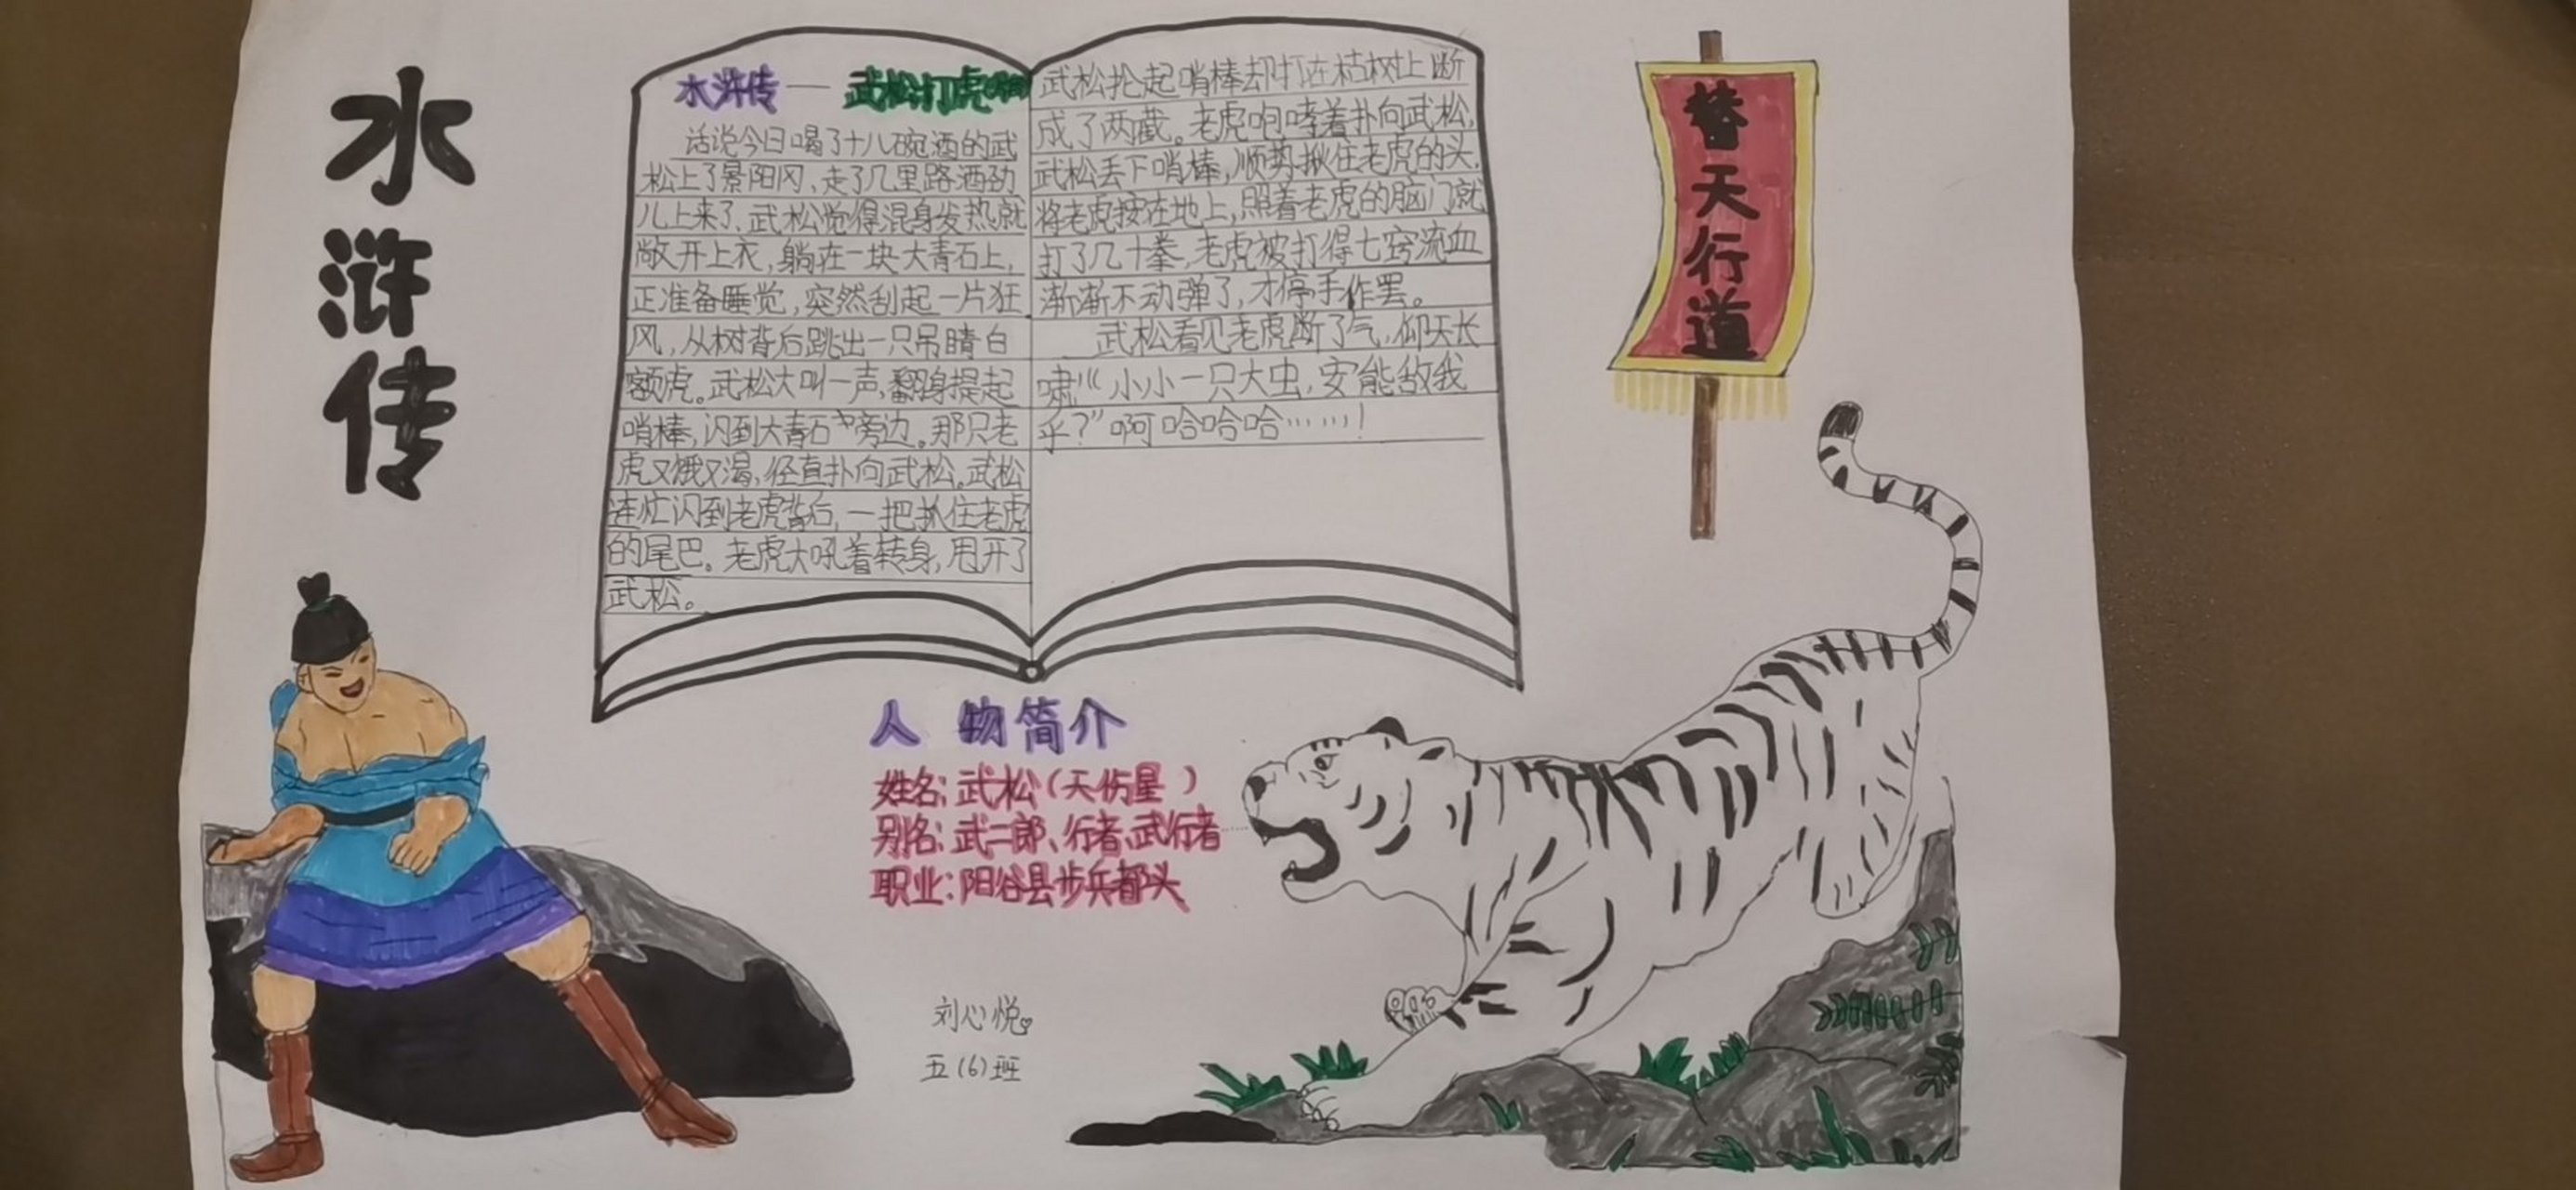 水浒传
水浒传——武松打虎
话说今日喝了十八碗酒的武
松上了景阳冈,走了几里路酒劲
儿上来了,武松觉得混身发热就
敞开上衣,躺在一块大青石上,
正准备睡觉,突然刮起一片狂
风,从树背后跳出一只吊睛白
额虎。武松大叫一声,翻身提起
哨棒,闪到大青石旁边。那只老
虎又饿又渴,径直扑向武松。武松
连忙闪到老虎背后,一把抓住老虎
的尾巴。老虎大吼着转身,甩开了
武松。
武松抡起哨棒却打在枯树上断
成了两截。老虎咆哮着扑向武松,
武松丢下哨棒,顺势揪住老虎的头,
将老虎按在地上,照着老虎的脑门就
打了几十拳,老虎被打得七窍流血
渐渐不动弹了,才停手作罢。
武松看见老虎断了气,仰天长
啸:“小小一只大虫,安能敌我
乎?”啊哈哈哈……!
替天行道
人物简介
姓名:武松(天伤星)
别名:武二郎、行者、武行者
职业:阳谷县步兵都头
刘心悦
五(6)班